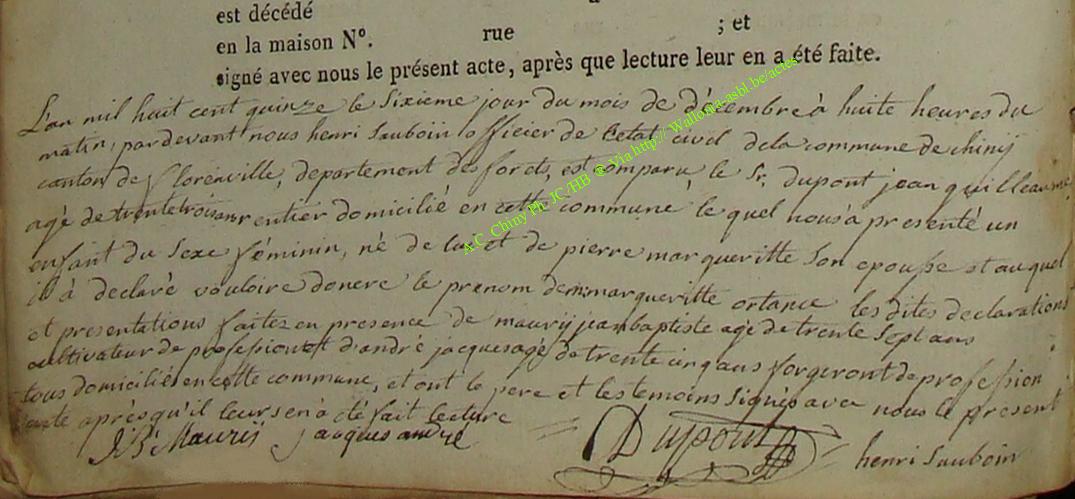 est décédé
en la maison N°. rue ; et
signé avec nous le présent acte, après que lecture leur en a été faite.
L'an mil huit cent quinze le Sixieme jour du mois de décembre à huite heures du
matin, pardevant nous henri Sauboin officier de l'etat civil dela commune de chinij
canton de florenville, departement desforets, est comparu le Sr. dupont jean guilleaume
agé detrentetroisans rentier domicilié en cette commune le quel nous à presenté un
enfant du Sexe féminin, né de lui et de pierre margueritte Son epousse et auquel
il à déclaré vouloire donere le prenom de margueritte ortance les dites declarations
et presentations faites en presence de maurij jeanbaptiste agé detrente Sept ans
cultivateur de profession et d'andré jacques agé detrente cinq ans forgeront deprofession
tous domicilié en cette commune, et ont le pere et les temoins Signés avec nous le présent
acte après qu'il leurs en à été fait lecture
JBt Maurij jacques andré Dupont henri Sauboin
A.C. Chiny Ph. JC./HB ® Via http:// Wallonia-asbl.be/actes